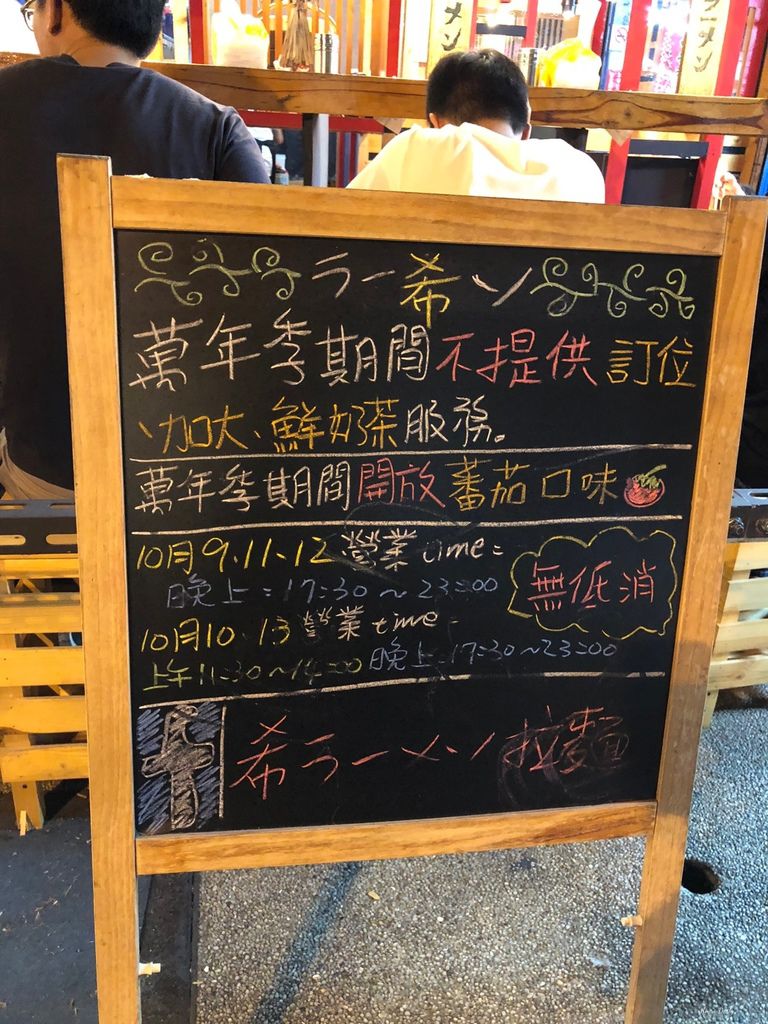 ラー希ン
萬年季期間不提供訂位
、加大、鮮奶茶服務。
萬年季期間開放蕃茄口味
10月9.11、12 營業time:
晚上:17:30~23:00
無低消
10月10.13 營業time:
上午11:30~14:00 晚上:17:30~23:00
希ラーメン拉麵